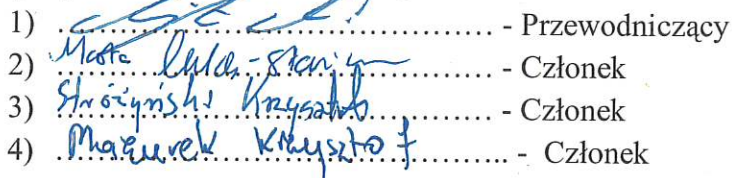 1) ........................................ - Przewodniczący
2) Marta ........................................ - Członek
3) Stróżyński Krzysztof - Członek
4) Mazurek Krzysztof - Członek